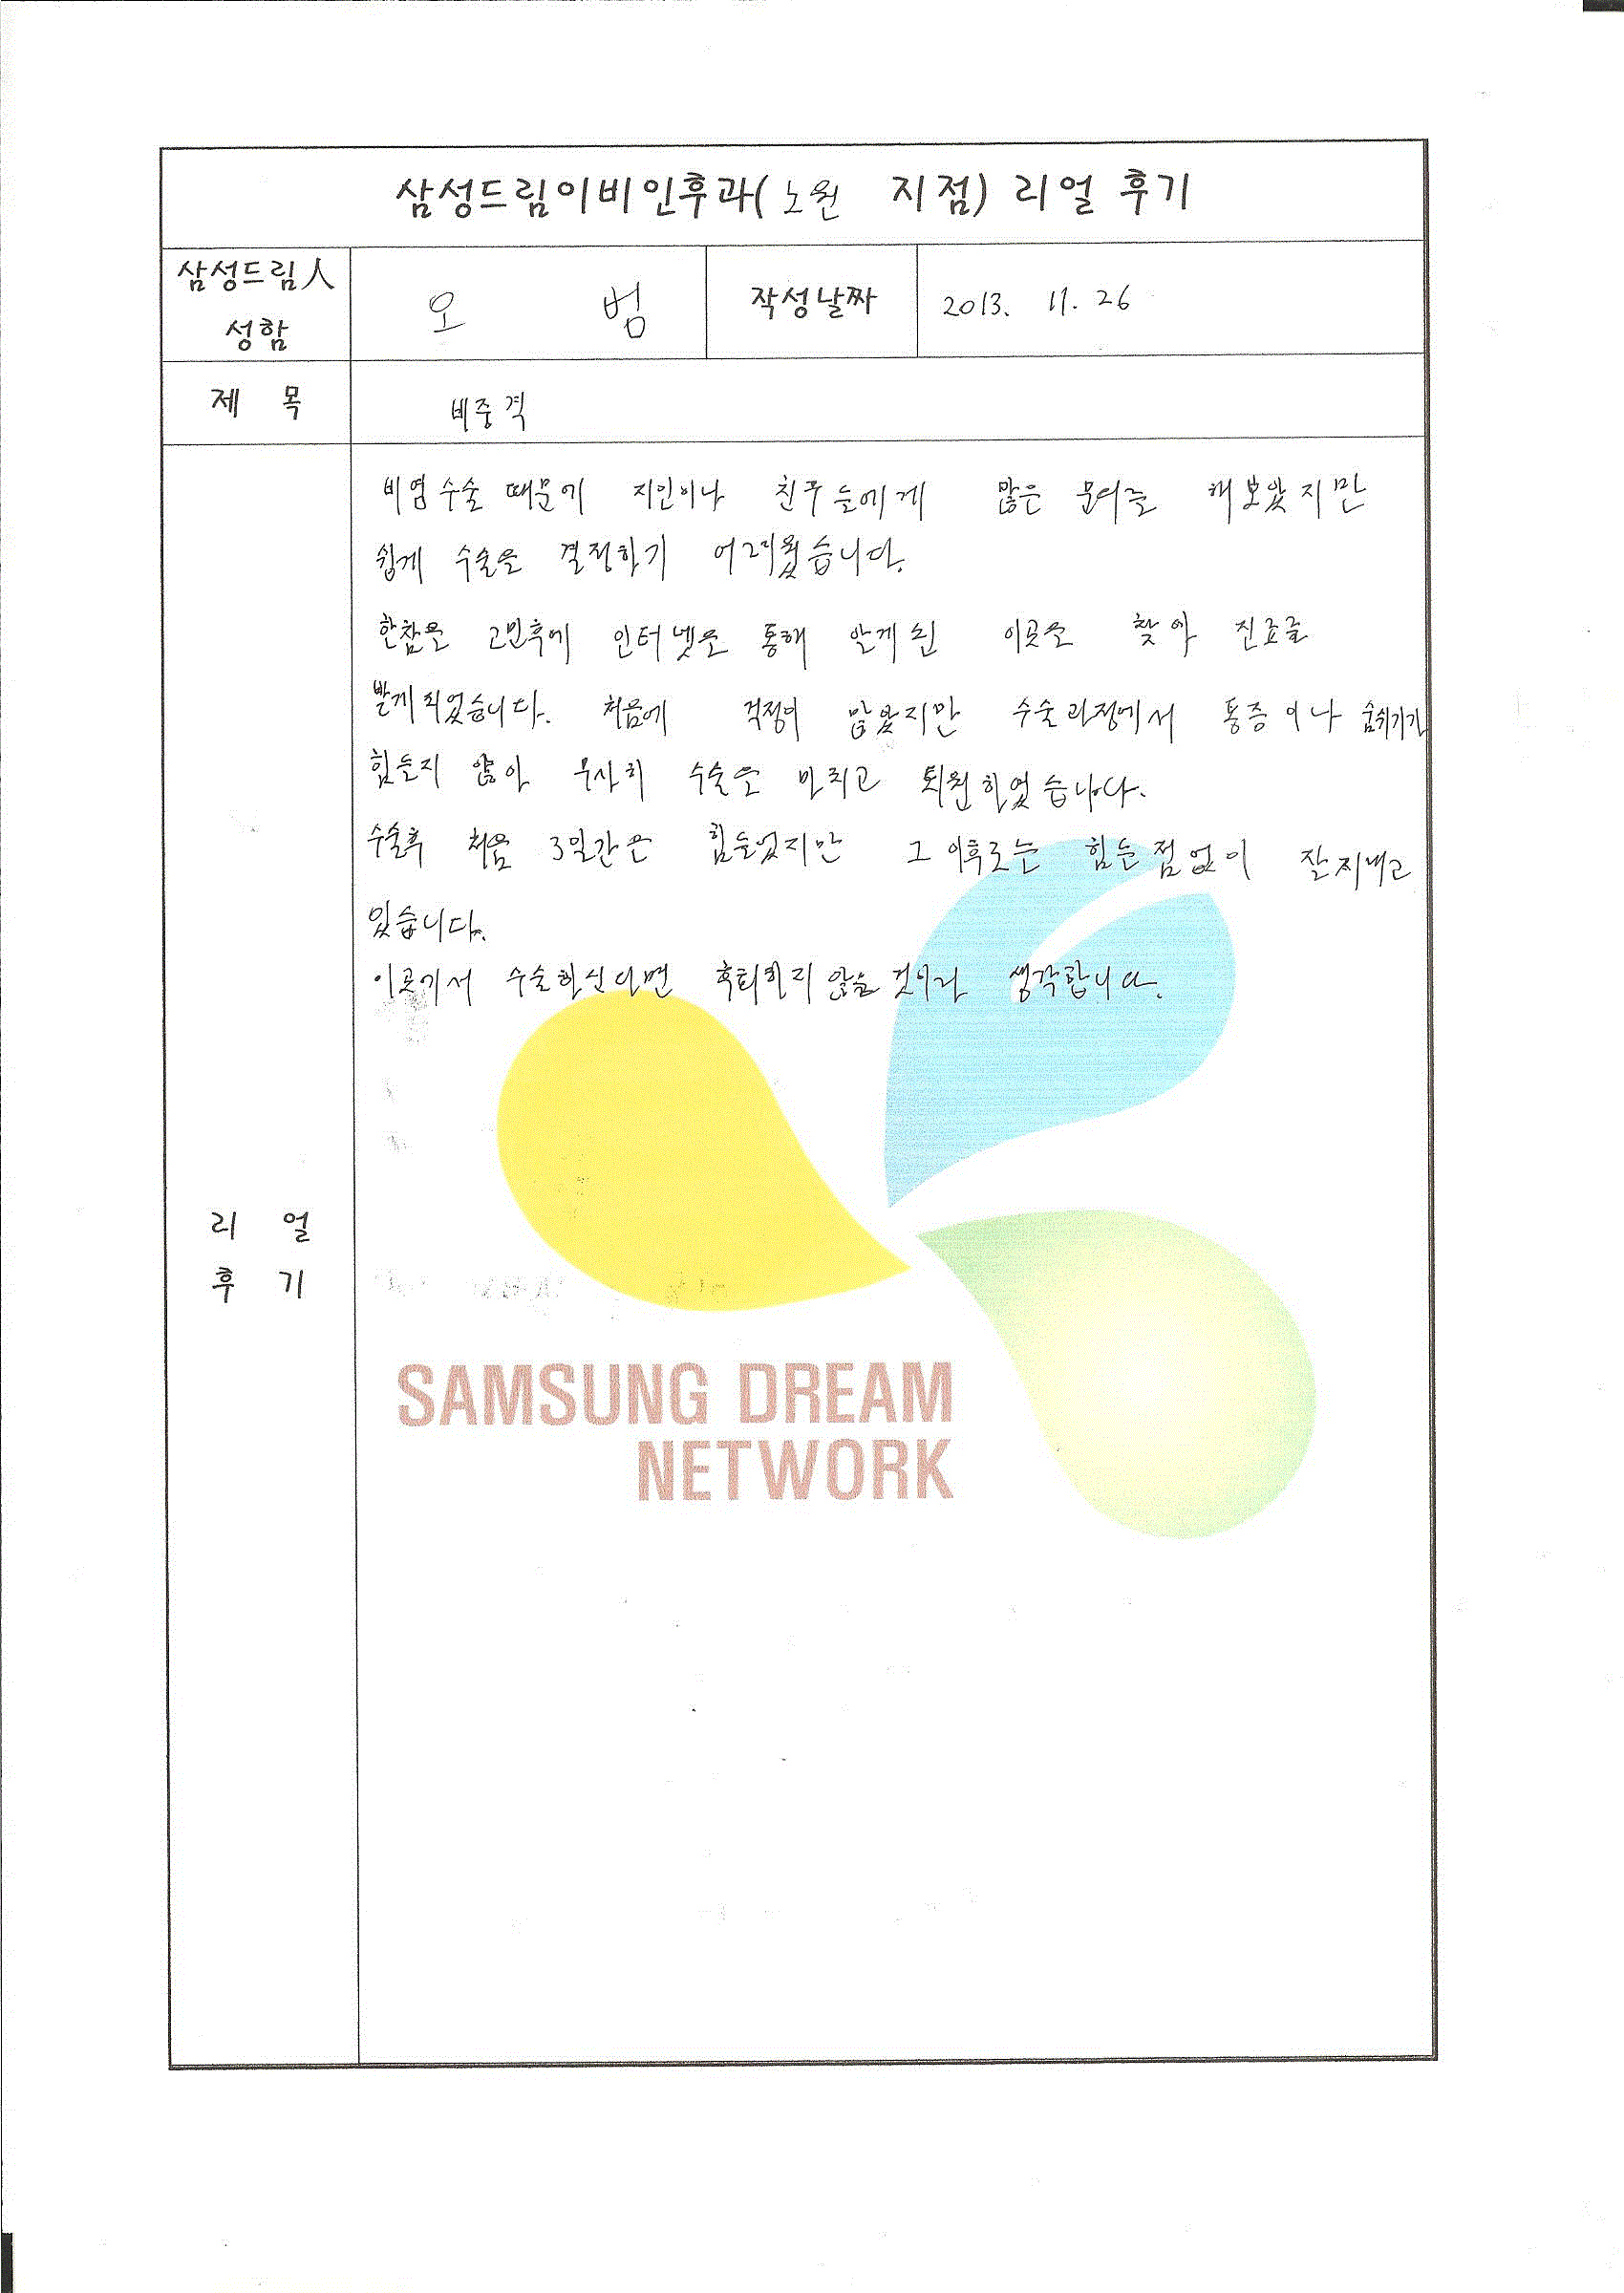 삼성드림이비인후과(노원 지점) 리얼 후기
삼성드림人 성함
오 범
작성날짜
2013. 11. 26
제 목
비중격
비염수술 때문에 지인이나 친구들에게 많은 문의를 해보았지만
쉽게 수술을 결정하기 어려웠습니다.
한참을 고민후에 인터넷을 통해 알게된 이곳을 찾아 진료를
받게되었습니다. 처음에 걱정이 많았지만 수술과정에서 통증이나 숨쉬기가
힘들지 않아 무사히 수술을 마치고 퇴원하였습니다.
수술후 처음 3일간은 힘들었지만 그 이후로는 힘든점없이 잘지내고
있습니다.
이곳에서 수술하신다면 후회하지 않을 것이라 생각합니다.
리 얼
후 기
SAMSUNG DREAM
NETWORK